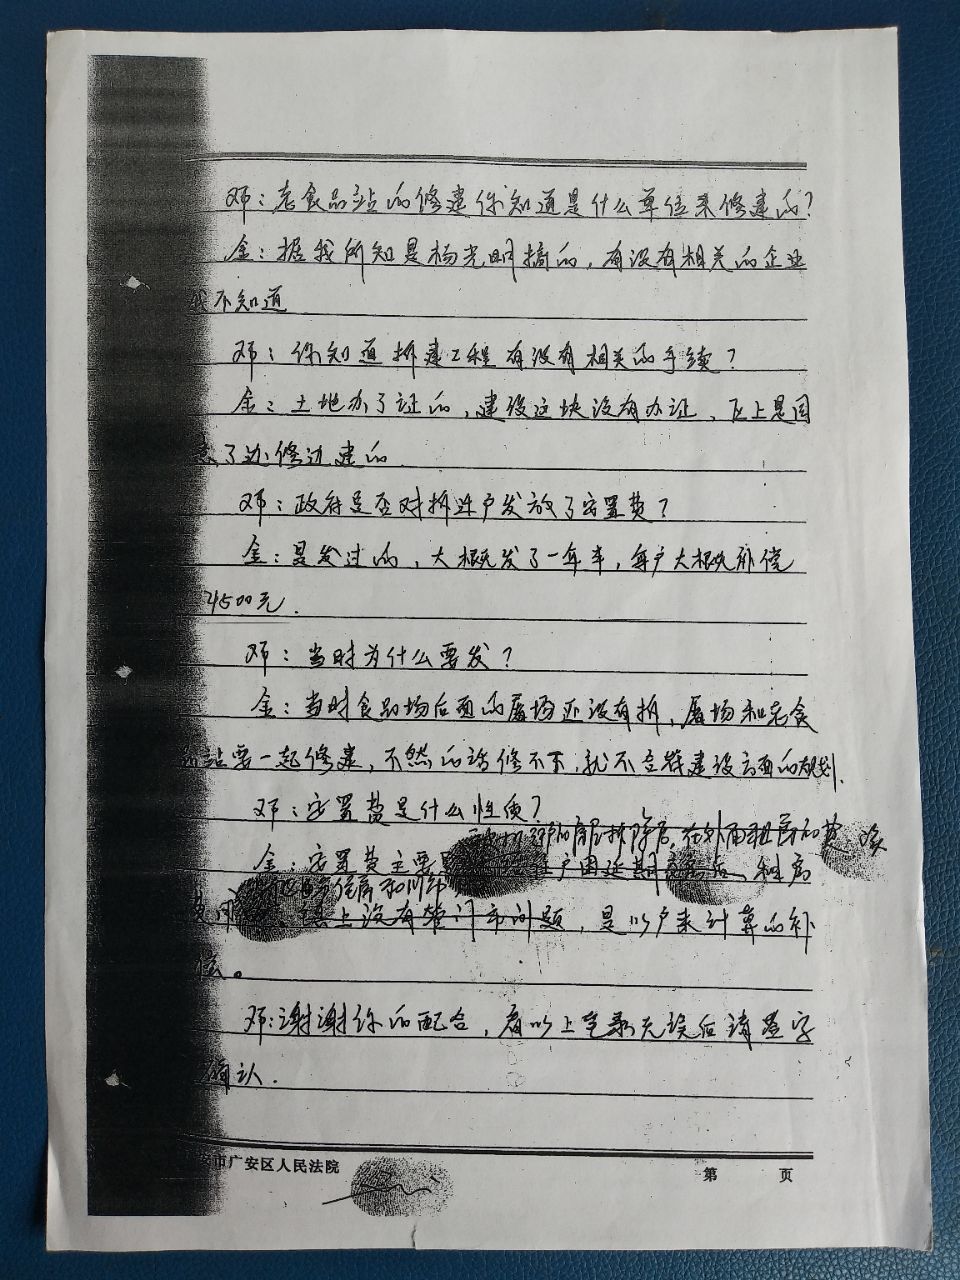 邓：老食品站的修建你知道是什么单位来修建的？
金：据我所知是杨光明搞的，有没有相关的企业
我不知道
邓：你知道拆建工程有没有相关的手续？
金：土地办了证的，建设这块没有办证、
了边修边建的
邓：政府是否对拆迁户发放了安置费？
金：是发过的，大概发了一年半，每户大概补偿
4500元.
邓：当时为什么要发？
金：当时食品场后面的屠场还没有拆，屠场和老食
品站要一起修建，不然的话修不下，就不符建设方面的规划.
邓：安置费是什么性质？
房屋拆除后，在外面租房的费
金：安置费主要 户因延期 后，租房
住房
费用 上没有管门市问题，是以户来计算的补
偿。
邓：谢谢你的配合，看以上笔录无误后请签字
确认.
市广安区人民法院 第 页